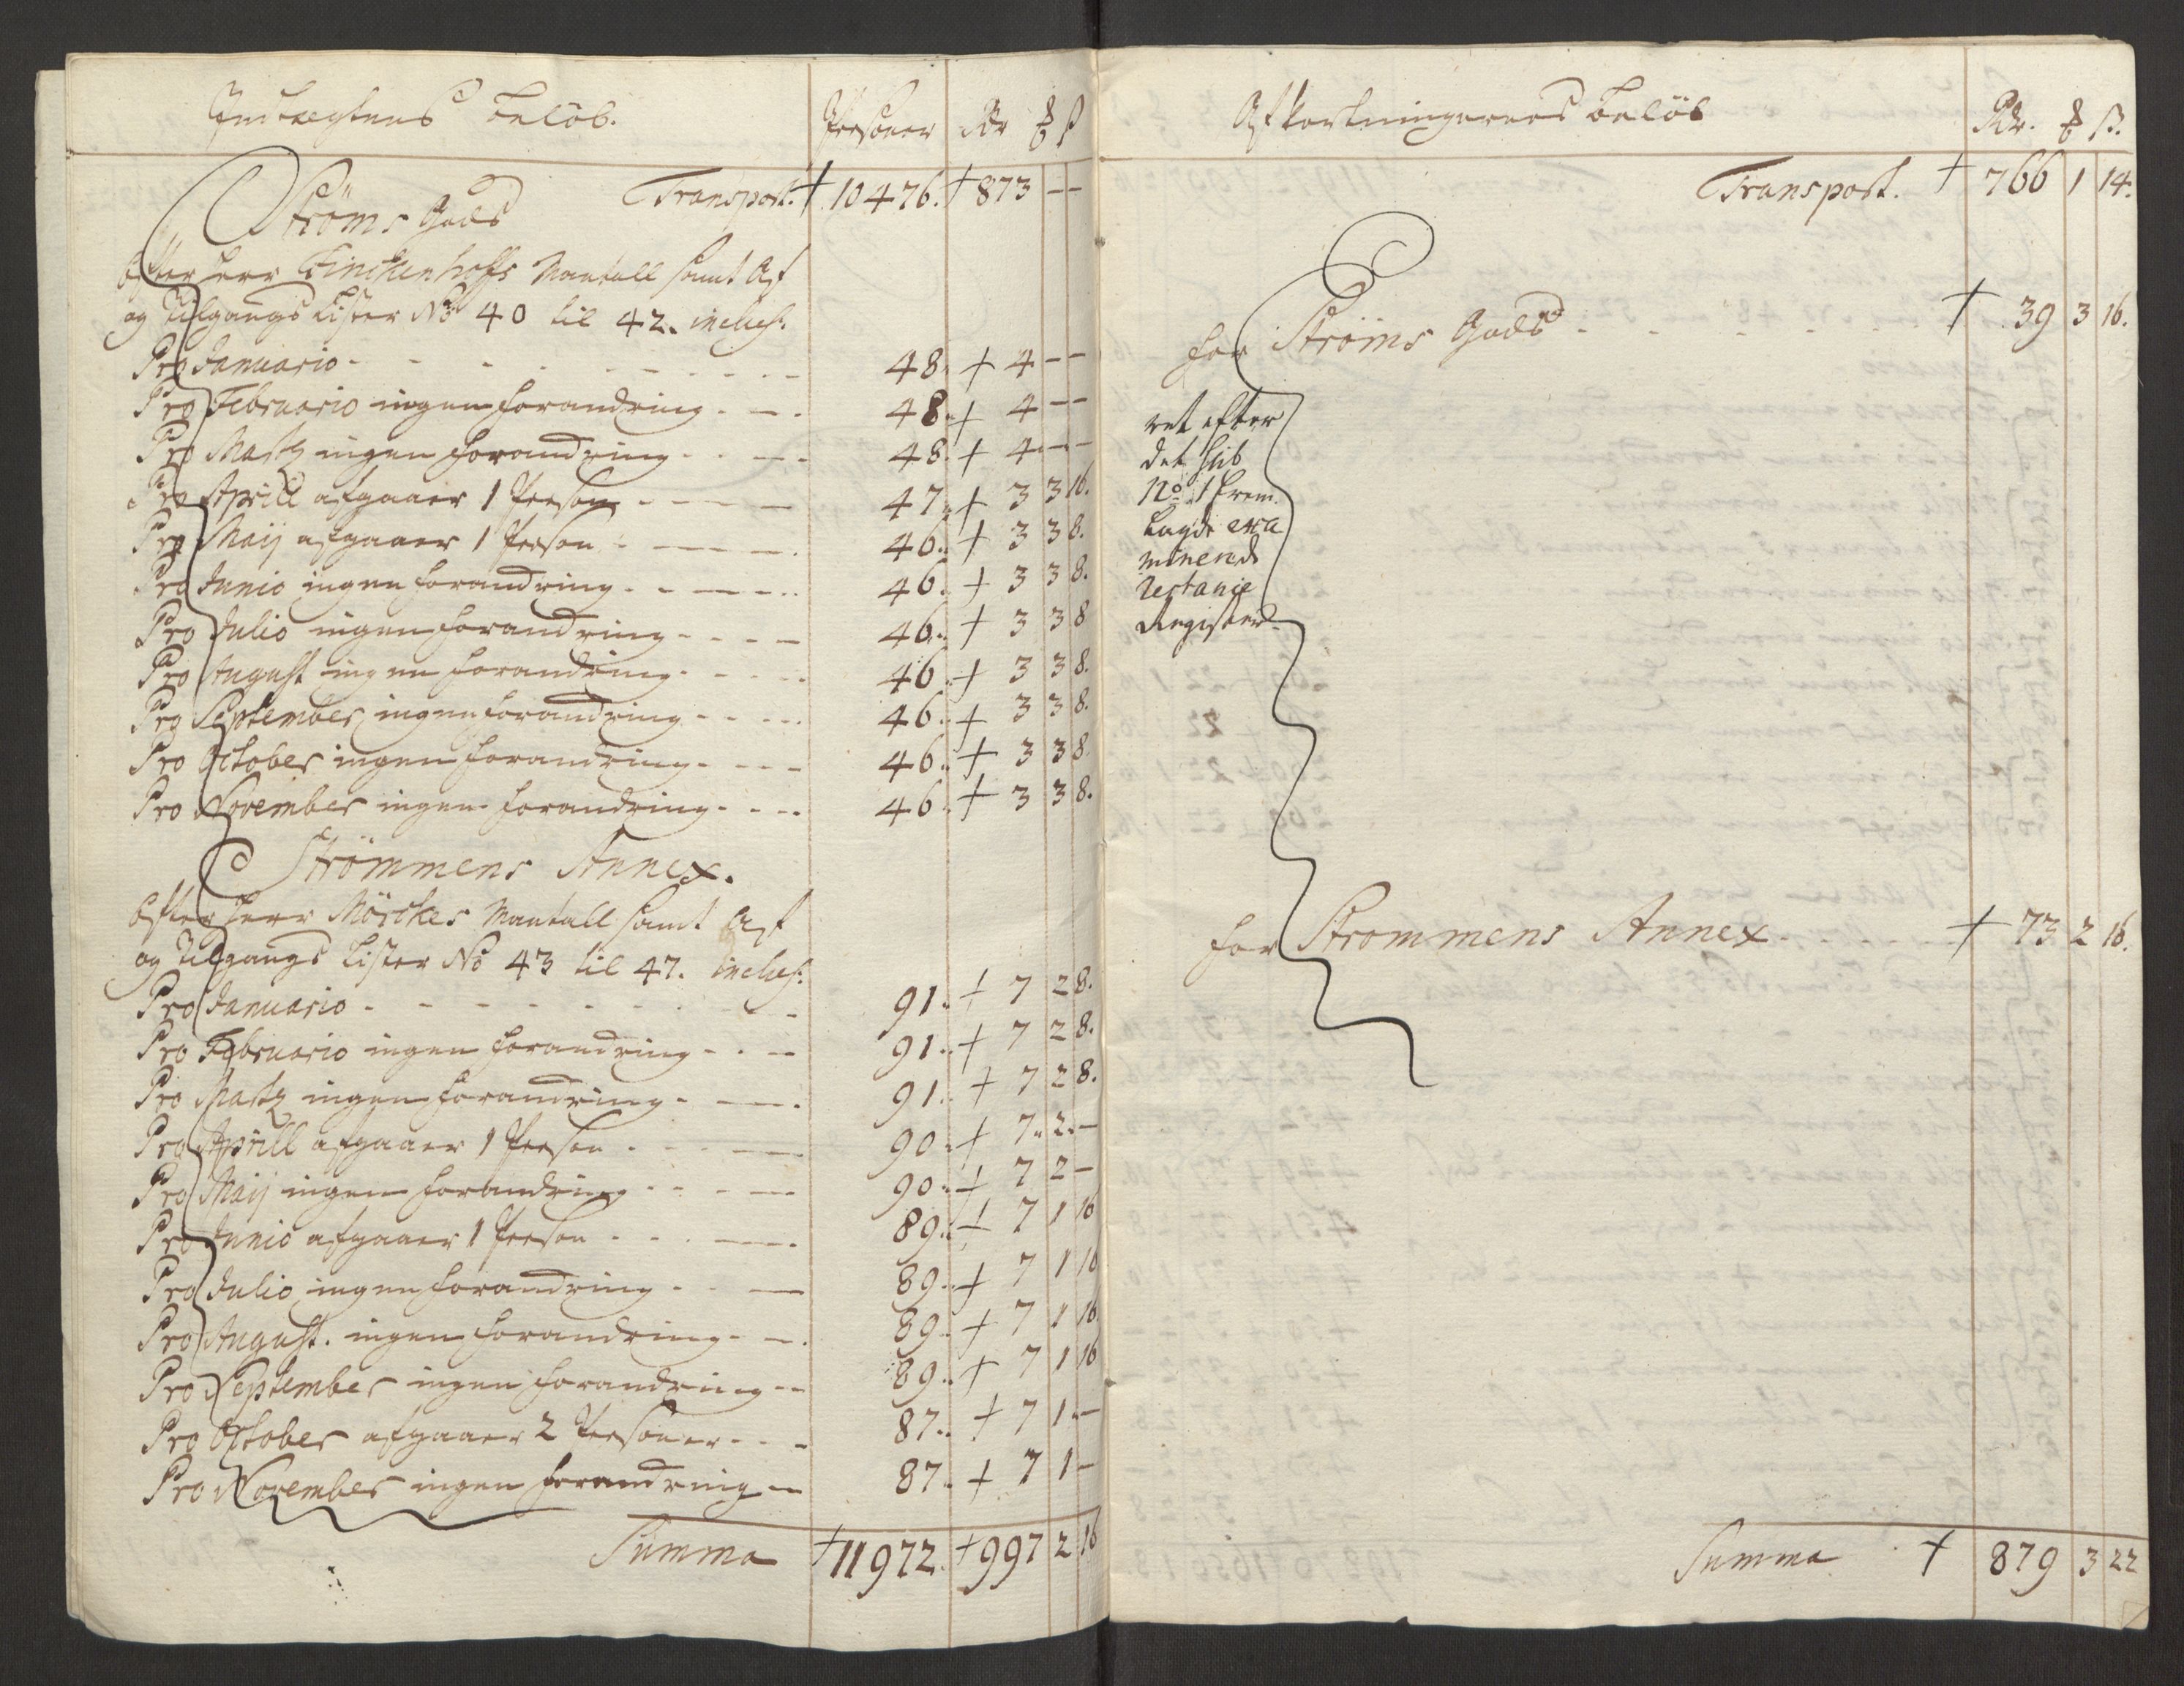 Indtægtens Beløb. Persohner Rdr ꝑ ß
Transport. + 10476. + 873 — —
Ströms Gods
Efter Herr Finckenhoffs Mantall samt Af
og Tilgangs Lister No 40 til 42. inclus:
Pro Januario - - - 48. + 4 — —
Pro Februario ingen forandring - - - 48. + 4 — —
Pro Martz ingen forandring - - - 48. + 4 — —
Pro Aprill afgaaer 1 Person - - - 47. + 3 3 16.
Pro Maij afgaaer 1 Person - - - 46. + 3 3 8.
Pro Junio ingen forandring - - - 46. + 3 3 8.
Pro Julio ingen forandring - - - 46. + 3 3 8
Pro August ingen forandring - - - 46. + 3 3 8.
Pro September ingen forandring - - - 46. + 3 3 8.
Pro October ingen forandring - - - 46. + 3 3 8.
Pro November ingen forandring - - - 46. + 3 3 8.
Strömmens Annex.
Efter Herr Mörckes Mantall samt Af
og Tilgangs Lister No 43 til 47. inclus:
Pro Januario - - - 91. + 7 2 8.
Pro Februario ingen forandring - - - 91. + 7 2 8.
Pro Martz ingen forandring - - - 91. + 7 2 8.
Pro Aprill afgaaer 1 Person - - - 90. + 7 2 —
Pro Maij ingen forandring - - - 90. + 7 2 —
Pro Junio afgaaer 1 Person - - - 89. + 7 1 16
Pro Julio ingen forandring - - - 89. + 7 1 16
Pro August. ingen forandring - - - 89. + 7 1 16
Pro September ingen forandring - - - 89. + 7 1 16
Pro October afgaaer 2 Personer - - - 87. + 7 1 —
Pro November ingen forandring - - - 87. + 7 1 —
Summa + 11972. + 997 2 16
Afkortningernes Beløb Rdr. ꝑ ß.
Transport. + 766 1 14.
for Ströms Gods - - - + 39 3 16.
ret efter
det sub
No 1 frem
lagde exa
minerede
restance
Register
for Strommens Annex - - - + 73 2 16.
Summa + 879 3 22